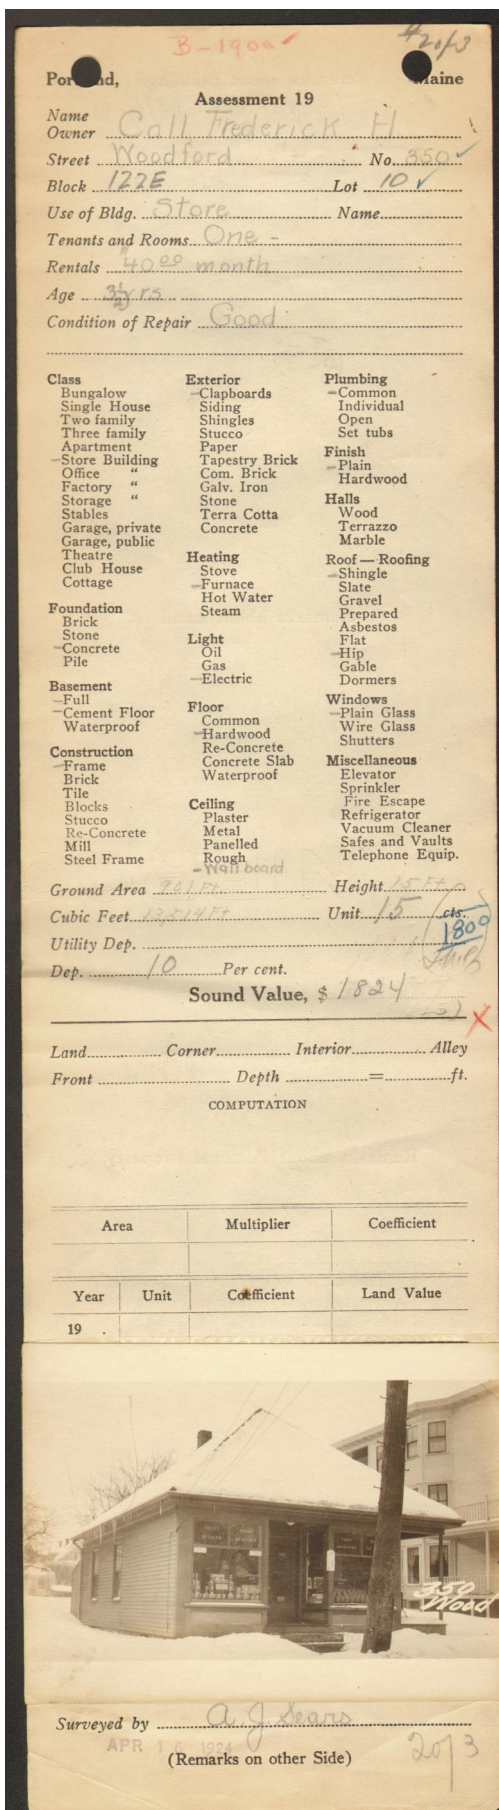 B-1900 ✓
#2 of 3
Portland, Maine
Assessment 19
Name
Owner Call Frederick H
Street Woodford No. 350 ✓
Block 122E Lot 10 ✓
Use of Bldg. Store Name
Tenants and Rooms One -
Rentals $40 00 month
Age 3 1/2 yrs
Condition of Repair Good
Class
Bungalow
Single House
Two family
Three family
Apartment
-Store Building
Office "
Factory "
Storage "
Stables
Garage, private
Garage, public
Theatre
Club House
Cottage
Foundation
Brick
Stone
-Concrete
Pile
Basement
-Full
-Cement Floor
Waterproof
Construction
-Frame
Brick
Tile
Blocks
Stucco
Re-Concrete
Mill
Steel Frame
Exterior
-Clapboards
Siding
Shingles
Stucco
Paper
Tapestry Brick
Com. Brick
Galv. Iron
Stone
Terra Cotta
Concrete
Heating
Stove
-Furnace
Hot Water
Steam
Light
Oil
Gas
-Electric
Floor
Common
-Hardwood
Re-Concrete
Concrete Slab
Waterproof
Ceiling
Plaster
Metal
Panelled
Rough
-Wall board
Plumbing
-Common
Individual
Open
Set tubs
Finish
-Plain
Hardwood
Halls
Wood
Terrazzo
Marble
Roof — Roofing
-Shingle
Slate
Gravel
Prepared
Asbestos
Flat
-Hip
Gable
Dormers
Windows
-Plain Glass
Wire Glass
Shutters
Miscellaneous
Elevator
Sprinkler
Fire Escape
Refrigerator
Vacuum Cleaner
Safes and Vaults
Telephone Equip.
Ground Area 901 Ft Height 15 Ft
Cubic Feet 13,514 Ft Unit 15 cts.
1800
Utility Dep.
Dep. 10 Per cent.
Sound Value, $ 1824
X
Land Corner Interior Alley
Front Depth = ft.
COMPUTATION
Area Multiplier Coefficient
Year Unit Coefficient Land Value
19 .
350
Wood
Surveyed by A J Sears
APR 16 1924
(Remarks on other Side)
2 of 3